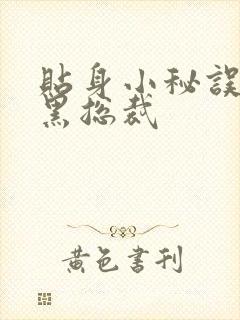 貼身小秘誤
黑总裁
黃色書刊